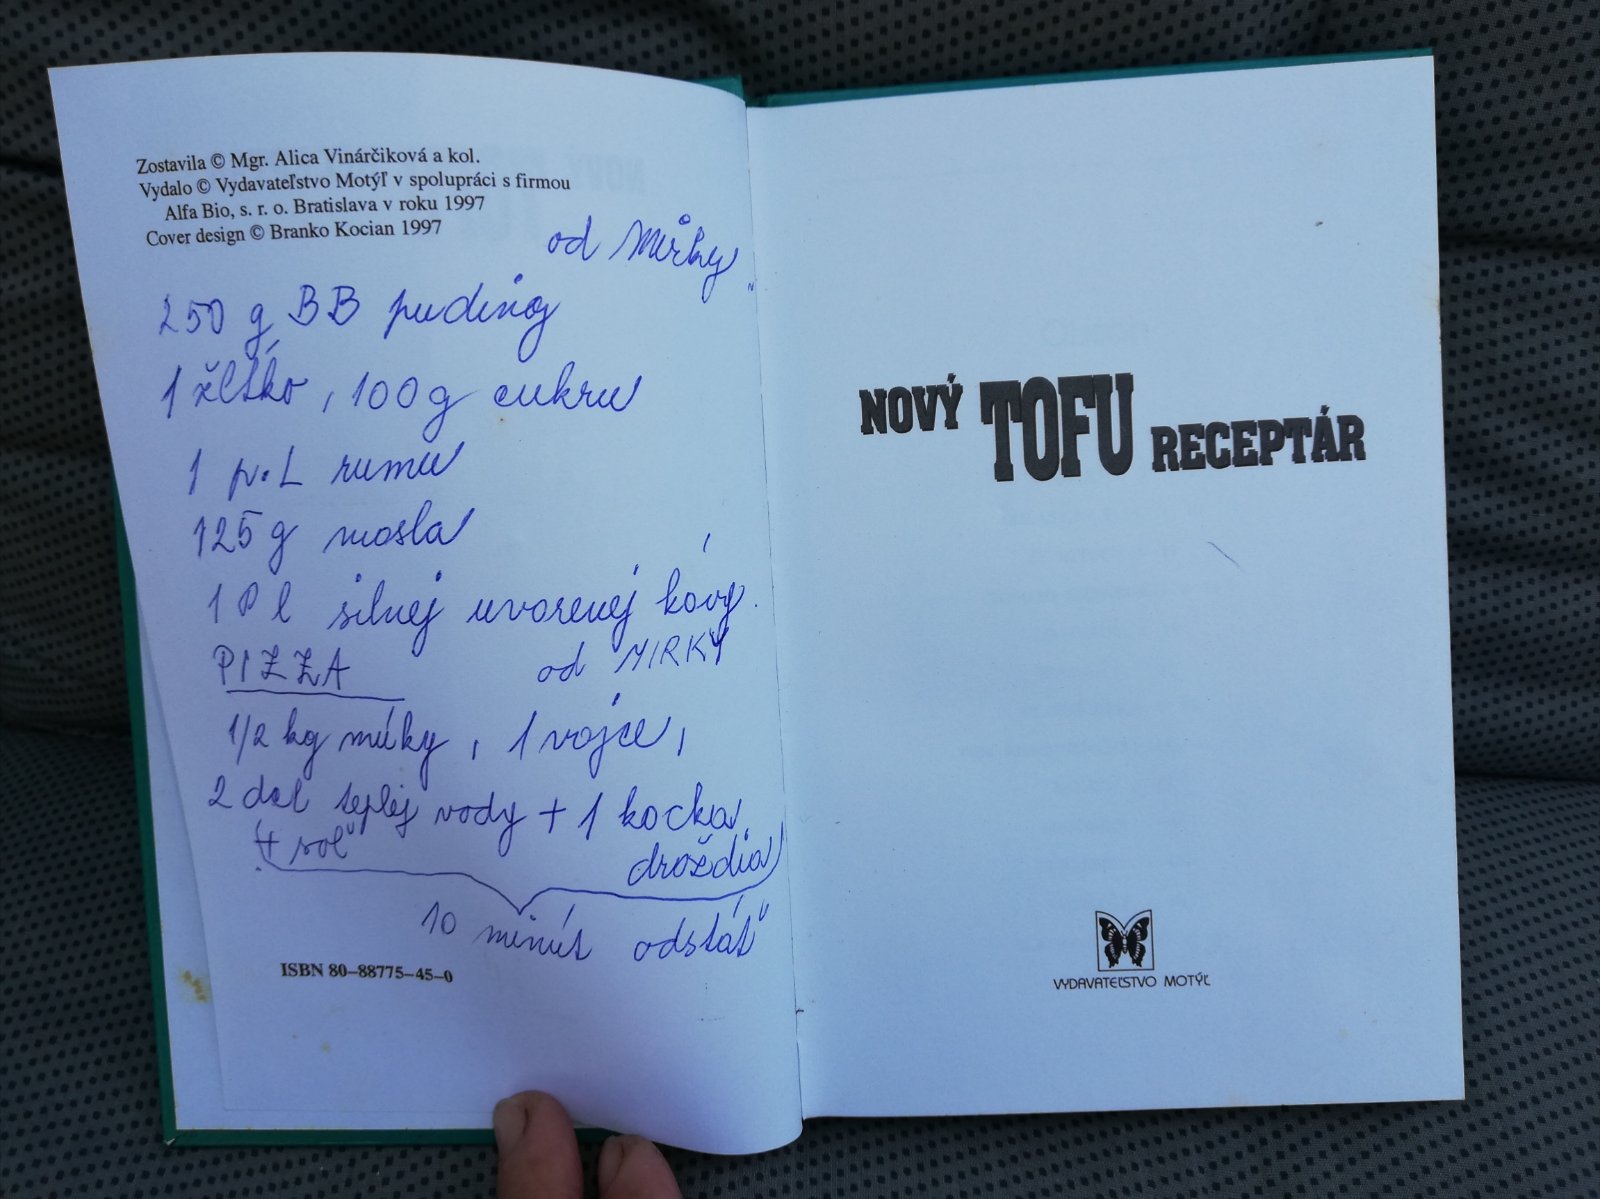 Zostavila © Mgr. Alica Vinárčiková a kol.
Vydalo © Vydavateľstvo Motýľ v spolupráci s firmou
Alfa Bio, s. r. o. Bratislava v roku 1997
Cover design © Branko Kocian 1997
od Mirky
250 g BB puding
1 žĺtko, 100 g cukru
1 p.L rumu
125 g masla
1 Pl silnej uvarenej kávy.
PIZZA od MIRKY
1/2 kg múky, 1 vajce,
2 dcl teplej vody + 1 kocka
+ soľ droždia
10 minút odstáť
ISBN 80–88775–45–0
NOVÝ TOFU RECEPTÁR
VYDAVATEĽSTVO MOTÝĽ